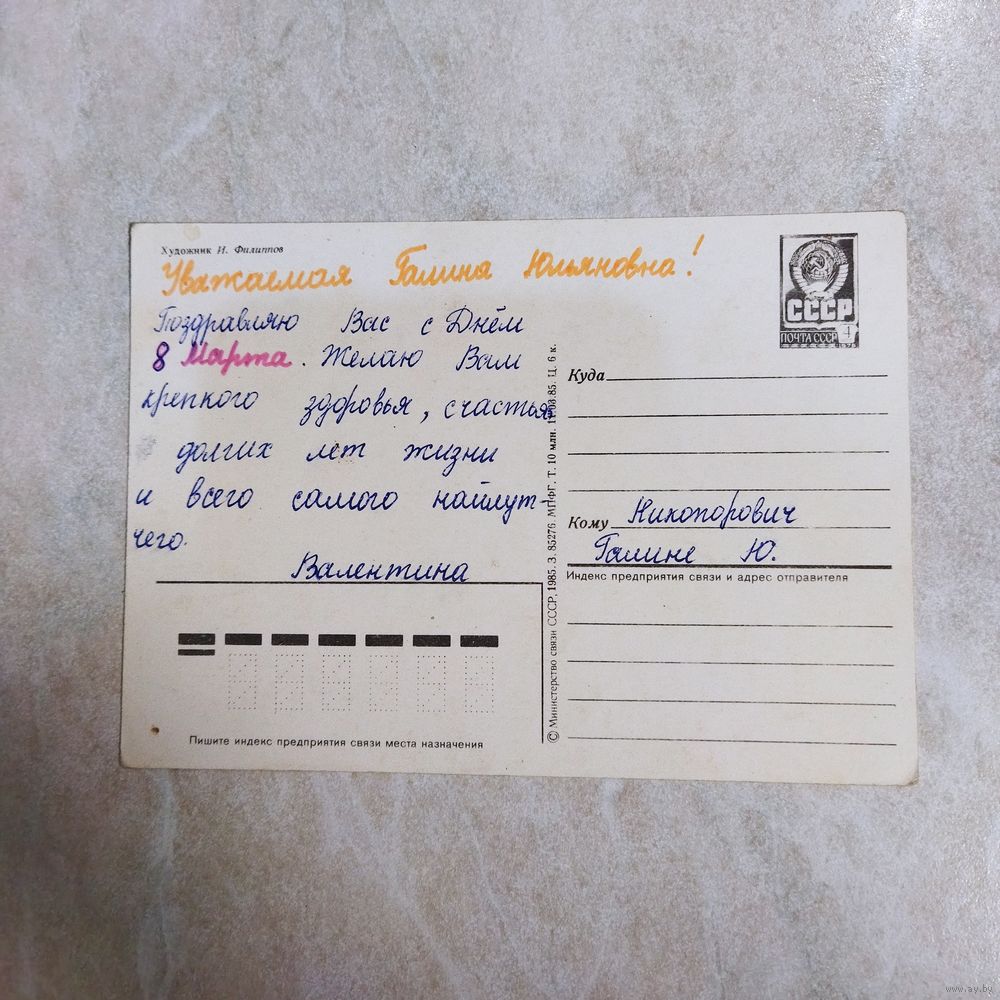 Художник И. Филиппов
Уважаемая Галина Юльяновна!
Поздравляю Вас с Днём
8 Марта. Желаю Вам
крепкого здоровья, счастья
долгих лет жизни
и всего самого наилут-
чего.
Валентина
Пишите индекс предприятия связи места назначения
© Министерство связи СССР, 1985. З. 85276. МПФГ. Т. 10 млн. 11.03.85. Ц. 6 к.
СССР
ПОЧТА СССР 4
Куда
Кому Никопорович
Галине Ю.
Индекс предприятия связи и адрес отправителя
www.ay.by